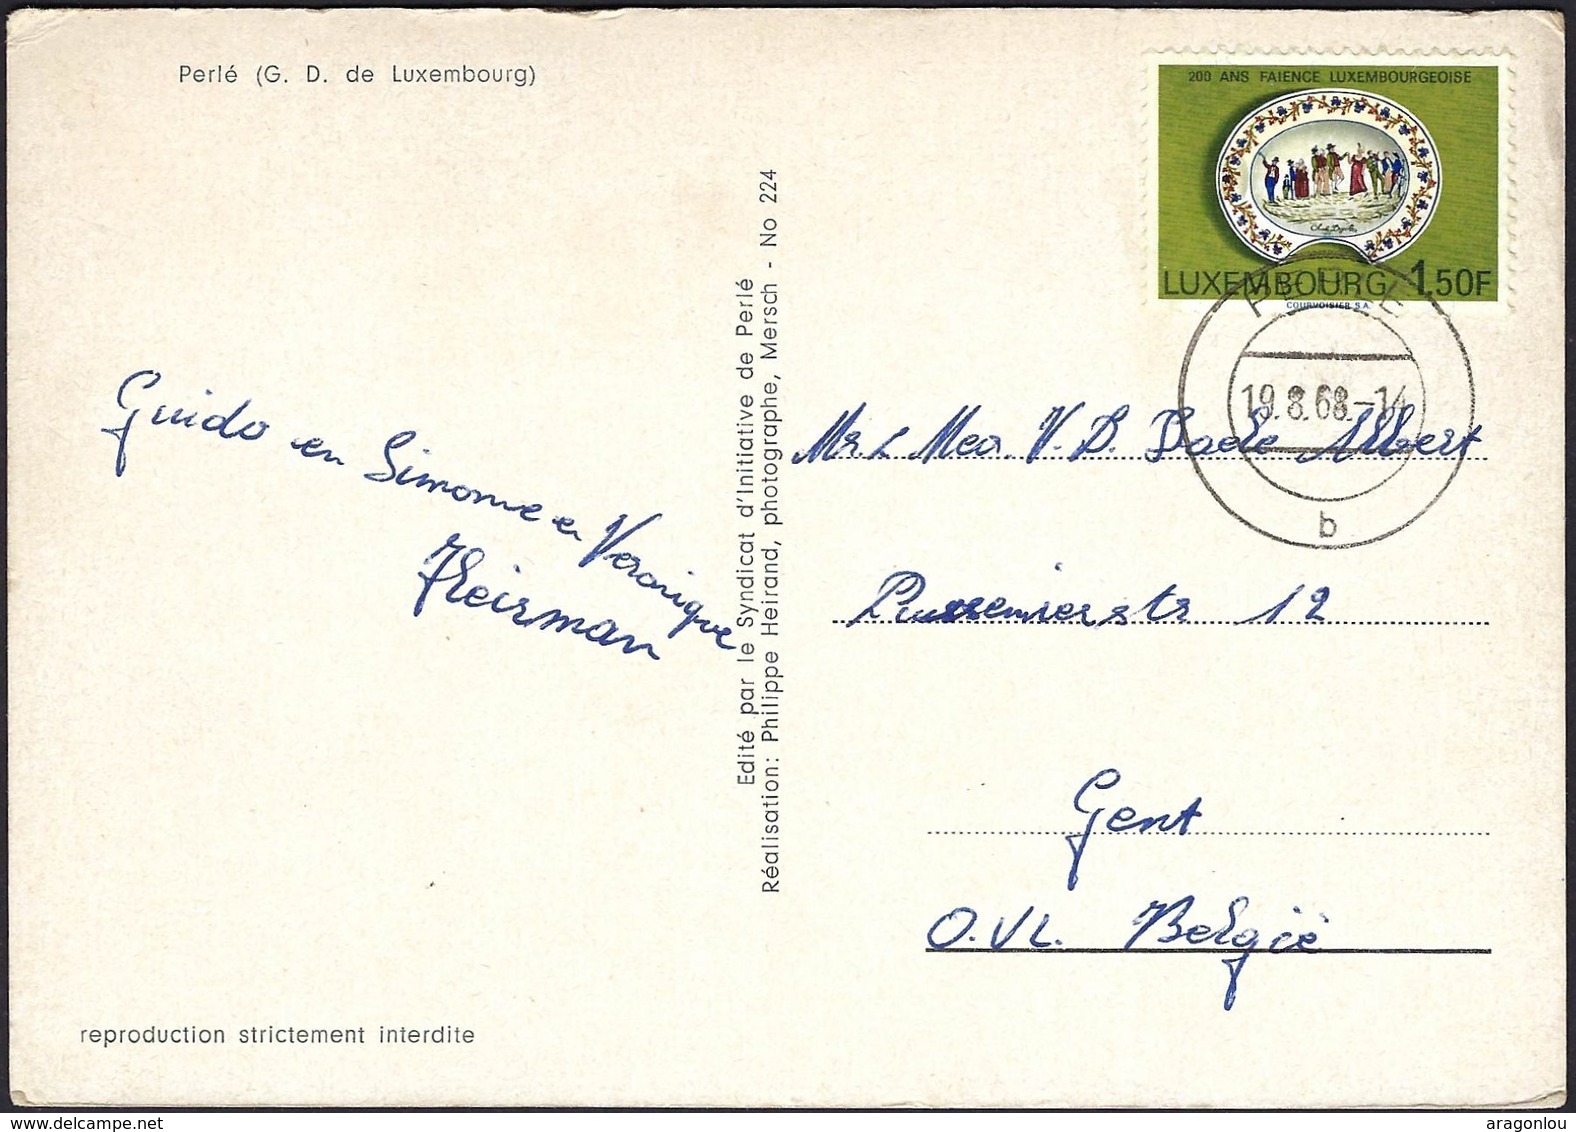 Perlé (G. D. de Luxembourg)
200 ANS FAIENCE LUXEMBOURGEOISE
LUXEMBOURG 1.50F
COURVOISIER S.A.
19.8.68.-14
b
Guido en Simonne en Veronique
Heirman
Edité par le Syndicat d'Initiative de Perlé
Réalisation: Philippe Heirand, photographe, Mersch - No 224
Mr & Mev. V. D. Albert
12
Gent
O.VL. België
reproduction strictement interdite
aragonlou